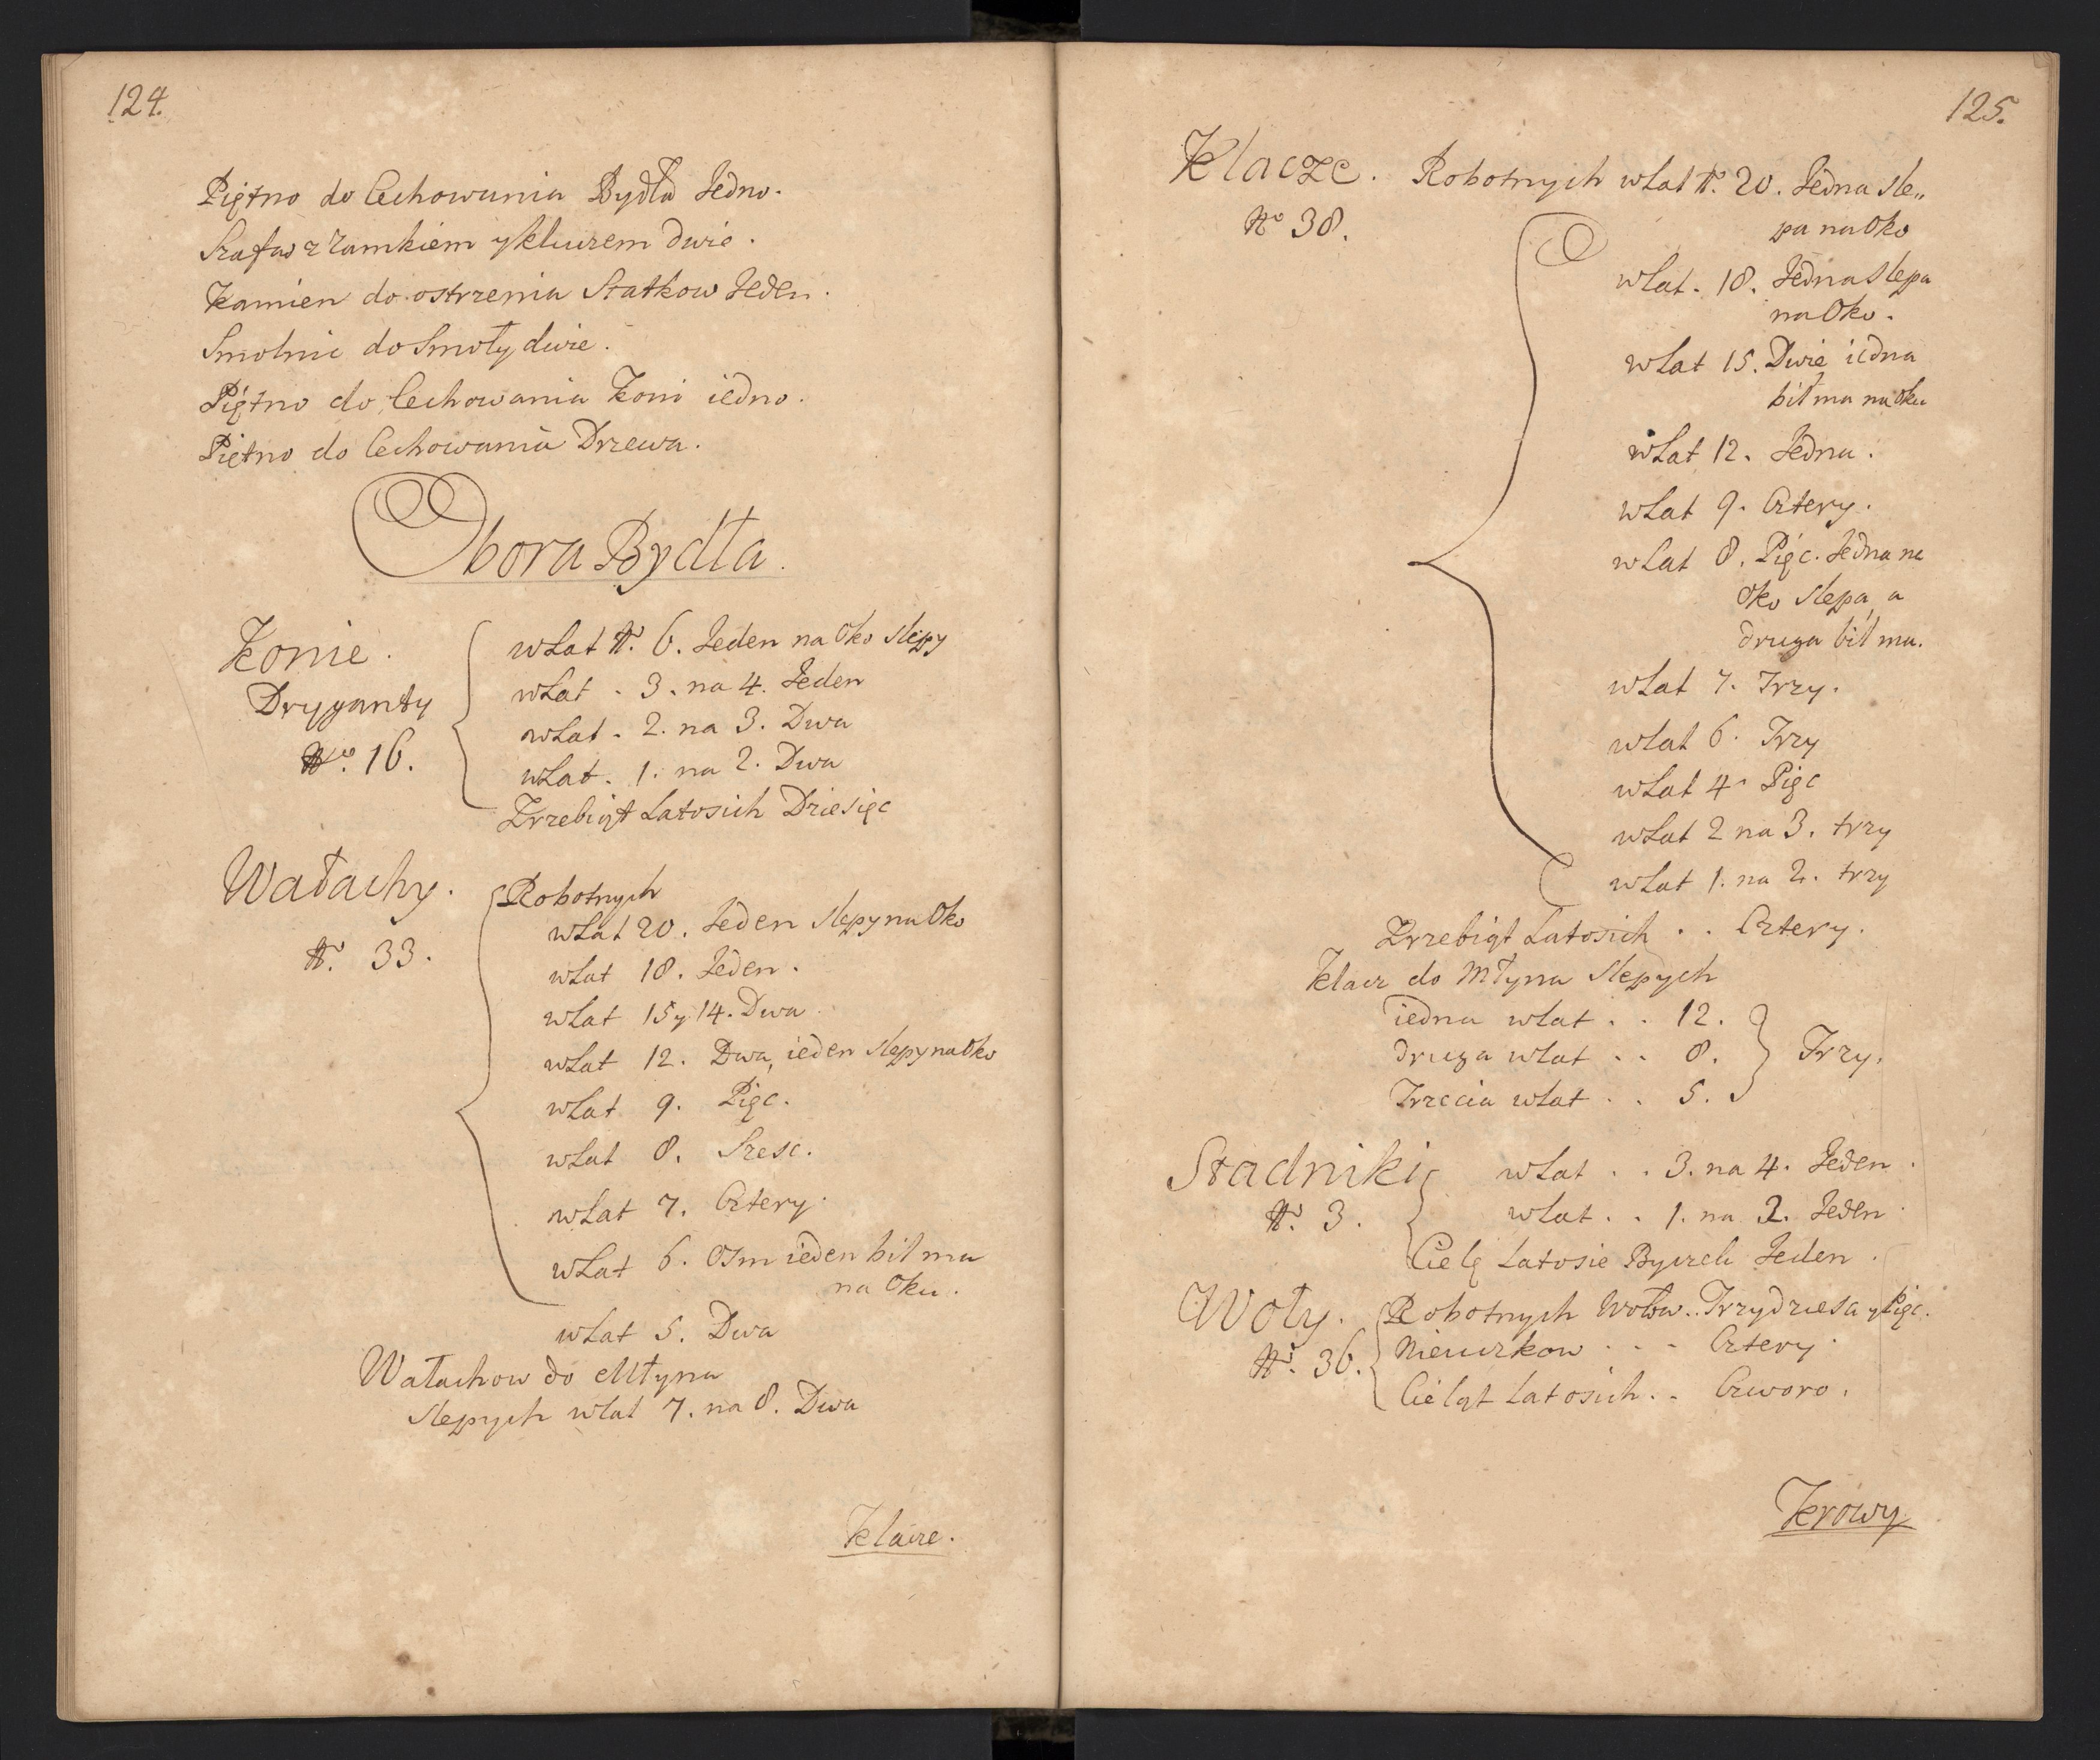 124.
Piętno do Cechowania Bydła Jedno.
Szafw z Zamkiem y kluczem dwie.
Kamien do ostrzenia Statkow Jeden.
Smolnic do Smoły dwie.
Piętno do Cechowania Koni iedno.
Piętno do Cechowania Drzewa.
Obora Bydła.
Konie.
Dryganty
No. 16.
w Lat No. 6. Jeden na Oko slepy
w Lat. 3. na 4. Jeden
w Lat. 2. na 3. Dwa
w Lat. 1. na 2. Dwa
Zrzebiąt Latosich Dziesięc
Wałachy.
No. 33.
Robotnych
w Lat 20. Jeden slepy na Oko
w Lat 18. Jeden.
w Lat 15 y 14. Dwa.
w Lat 12. Dwa, ieden slepy na Oko
w Lat 9. Pięc.
w Lat 8. Szesc.
w Lat 7. Cztery.
w Lat 6. Osm ieden bił ma
na Oku.
w Lat 5. Dwa
Wałachow do Młyna
slepych w lat 7. na 8. Dwa
Klacze.
125.
Klacze. Robotnych w Lat No. 20. Jedna sle„
No 38.
pa na Oko
w Lat. 18. Jedna slepa
na Oko.
w Lat 15. Dwie iedna
bił ma na Oku
w Lat 12. Jedna.
w Lat 9. Cztery.
w Lat 8. Pięc. Jedna na
Oko slepa, a
druga bił ma.
w Lat 7. Trzy.
w Lat 6. Trzy
w Lat 4. Pięc
w Lat 2 na 3. trzy
w Lat 1. na 2. trzy
Zrzebiąt Latosich . . Cztery.
Klacz do Młyna slepych
iedna w Lat . . 12.
druga w Lat . . 8. Trzy.
Trzecia w Lat . . 5.
Stadniki w Lat . . 3. na 4. Jeden.
No. 3.
w Lat . . 1. na 2. Jeden.
Cielę Latosie Byczek Jeden.
Woły. Robotnych Wołow . . Trzydziesci y Pięc.
No. 36.
Nieuczkow . . . Cztery.
Cieląt Latosich . . Czworo.
Krowy